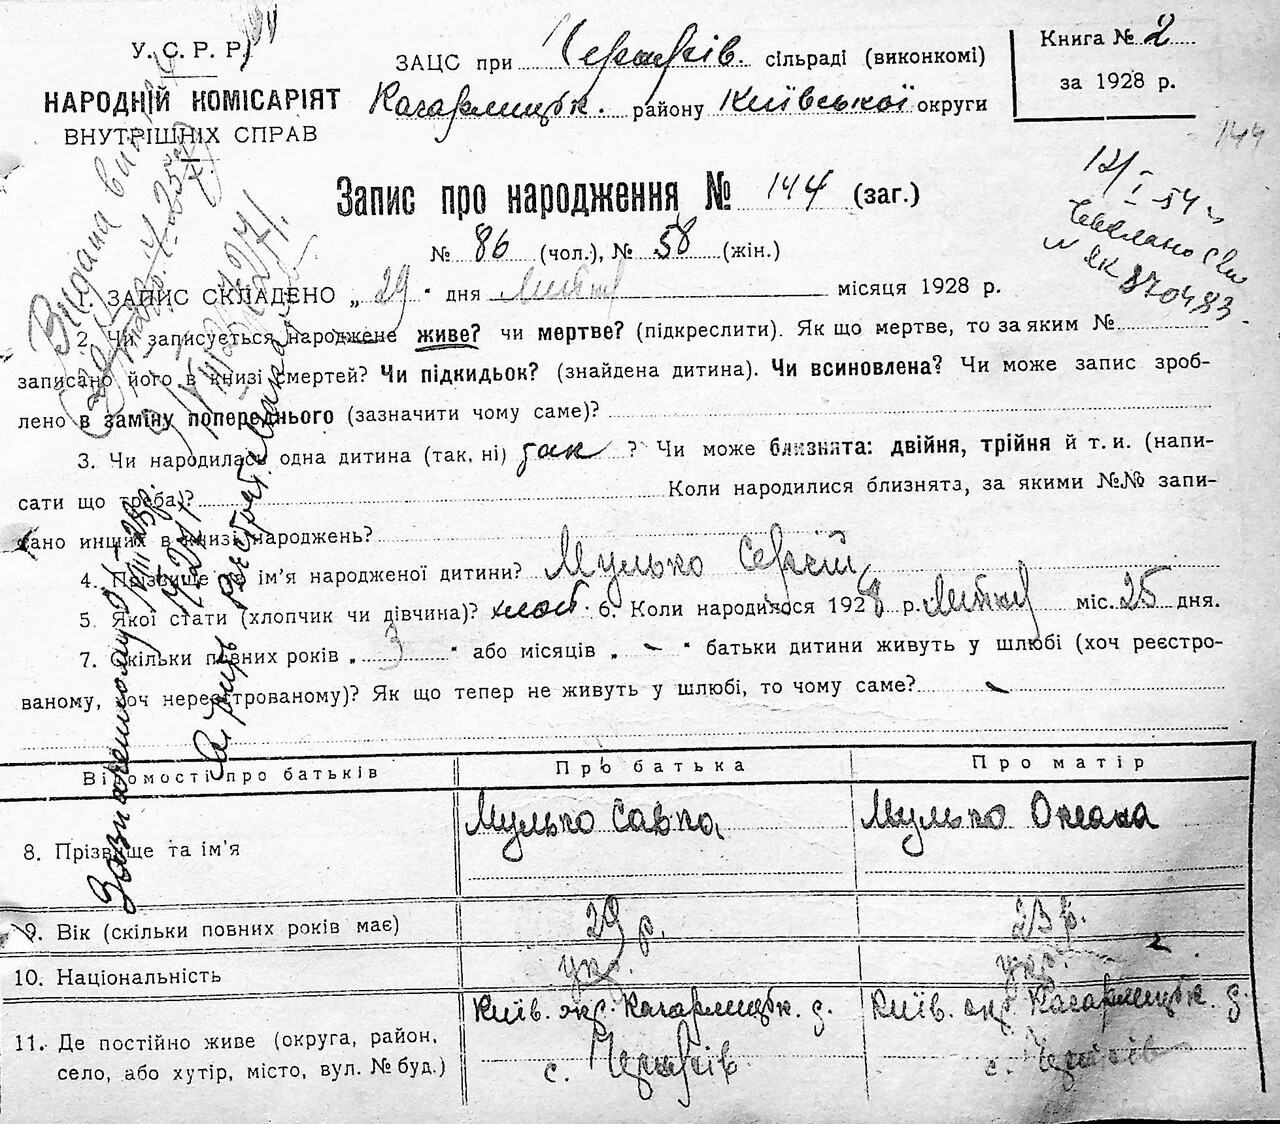 У. С. Р. Р.
НАРОДНІЙ КОМІСАРІЯТ
ВНУТРІШНІХ СПРАВ
ЗАЦС при сільраді (виконкомі)
Кагарлицьк. району Київської округи
Книга № 2
за 1928 р.
144
12/I 54
№ 870483
Запис про народження № 144 (заг.)
№ 86 (чол.), № 58 (жін.)
1. ЗАПИС СКЛАДЕНО „ 29 “ дня Лютий місяця 1928 р.
2. Чи записується народжене живе? чи мертве? (підкреслити). Як що мертве, то за яким №
записано його в книзі смертей? Чи підкидьок? (знайдена дитина). Чи всиновлена? Чи може запис зроб-
лено в заміну попереднього (зазначити чому саме)?
3. Чи народилась одна дитина (так, ні) так ? Чи може близнята: двійня, трійня й т. и. (напи-
сати що треба)? Коли народилися близнята, за якими №№ запи-
сано инших в книзі народжень?
4. Прізвище та ім'я народженої дитини? Мулько Сергій
5. Якої стати (хлопчик чи дівчина)? хлоп. 6. Коли народилося 1928 р. Лютий міс. 25 дня.
7. Скільки повних років „ 3 “ або місяців „ – “ батьки дитини живуть у шлюбі (хоч реєстро-
ваному, хоч нереєстрованому)? Як що тепер не живуть у шлюбі, то чому саме? –
Відомості про батьків Про батька Про матір
8. Прізвище та ім'я Мулько Савка Мулько Оксана
9. Вік (скільки повних років має) 29 р. 23 р.
10. Національність укр. укр.
11. Де постійно живе (округа, район, Київ. окр. Кагарлицьк. р. Київ. окр. Кагарлицьк. р.
село, або хутір, місто, вул. № буд.) с. с.